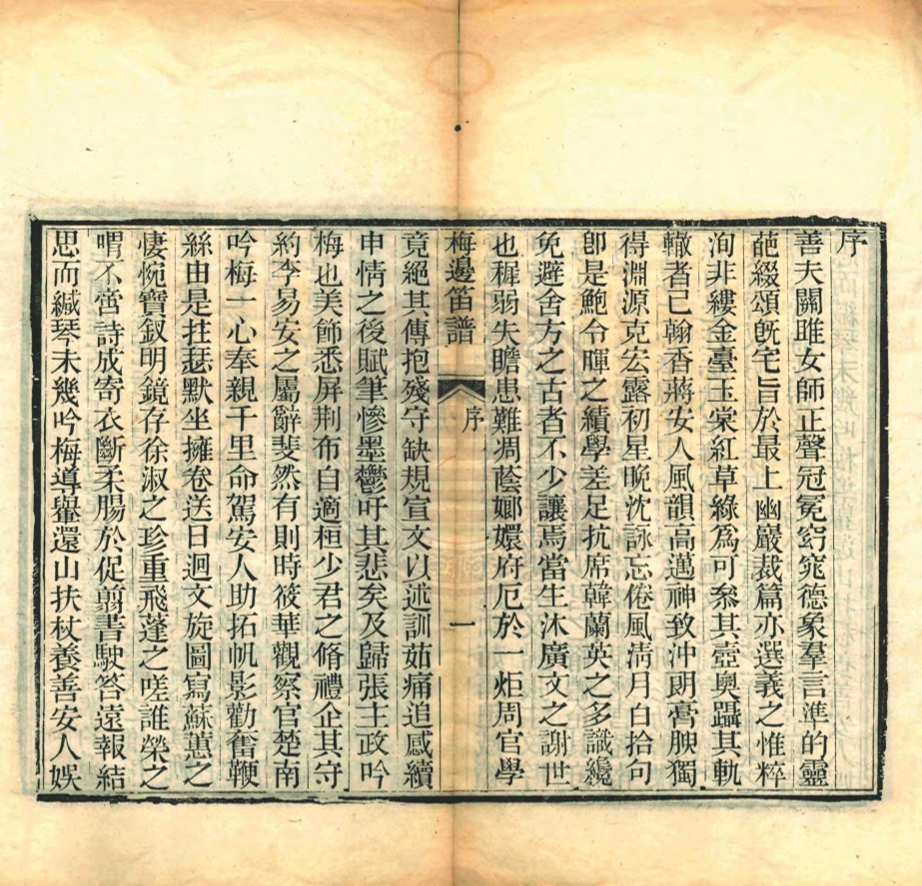 序
善夫關雎女師正聲冠冕窈窕德象羣言準的靈
葩綴頌旣宅旨於最上幽巖裁篇亦選義之惟粹
洵非縷金臺玉棠紅草綠爲可叅其壼奧躡其軌
轍者已翰香蔣安人風韻高邁神致沖朗膏腴獨
得淵源克宏露初星晚沈詠忘倦風淸月白拾句
卽是鮑令暉之績學差足抗席韓蘭英之多識纔
免避舍方之古者不少讓焉當生沐廣文之謝世
也穉弱失瞻患難凋蔭嫏嬛府厄於一炬周官學
梅邊笛譜
序
一
竟絕其傳抱殘守缺規宣文以述訓茹痛追感續
申情之後賦筆慘墨鬱吁其悲矣及歸張主政吟
梅也美飾悉屏荆布自適桓少君之脩禮企其守
約李易安之屬辭斐然有則時筱華觀察官楚南
吟梅一心奉親千里命駕安人助拓帆影勸奮鞭
絲由是拄瑟默坐擁卷送日迴文旋圖寫蘇蕙之
悽惋寶釵明鏡存徐淑之珍重飛蓬之嗟誰榮之
喟不啻詩成寄衣斷柔腸於促翦書駛答遠報結
思而緘琴未幾吟梅導轝還山扶杖養善安人娛